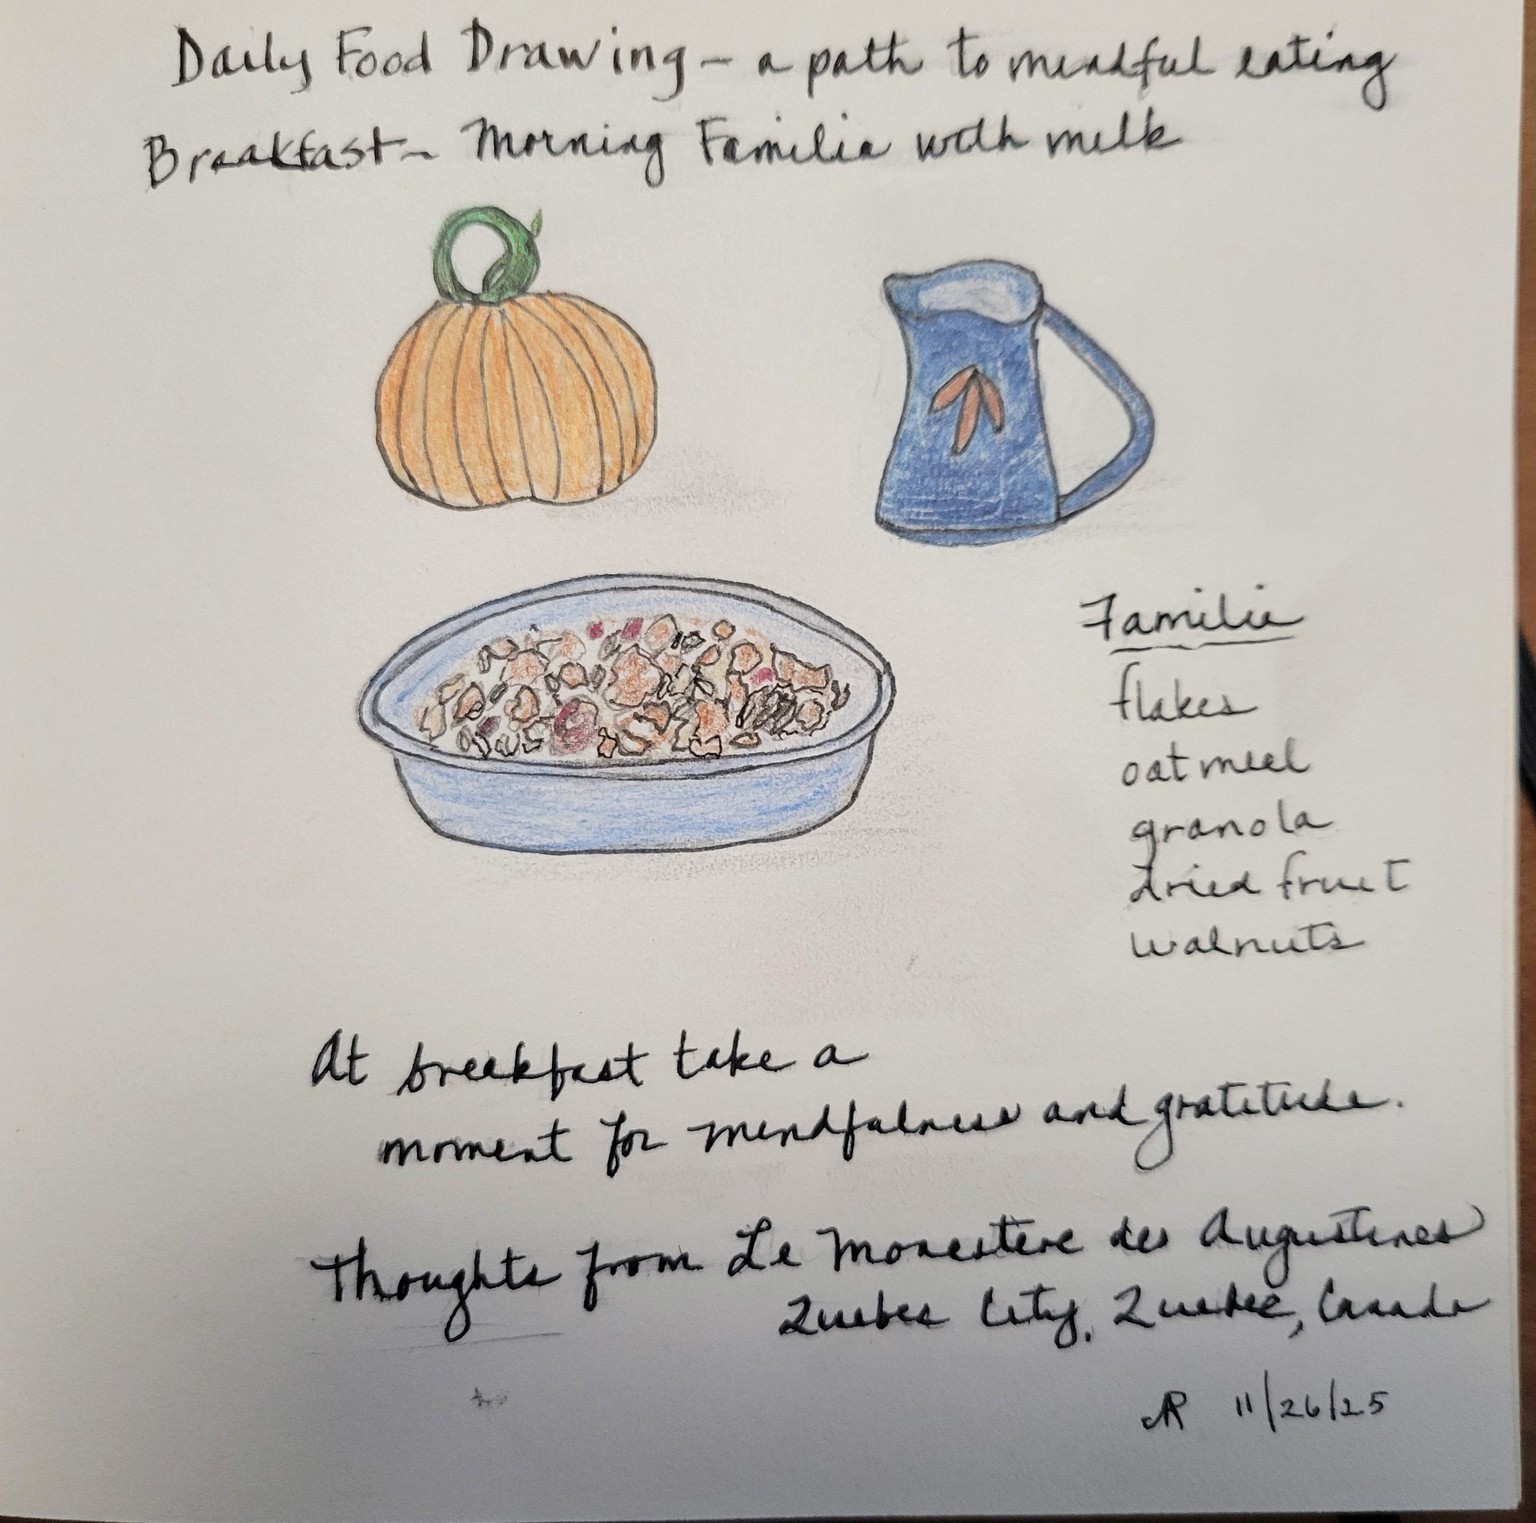 Daily Food Drawing - a path to mindful eating
Breakfast - Morning Familia with milk
Familia
flakes
oatmeal
granola
dried fruit
walnuts
At breakfast take a
moment for mindfulness and gratitude.
Thoughts from Le Monestère des Augustines
Quebec City, Quebec, Canada
AR 11/26/25